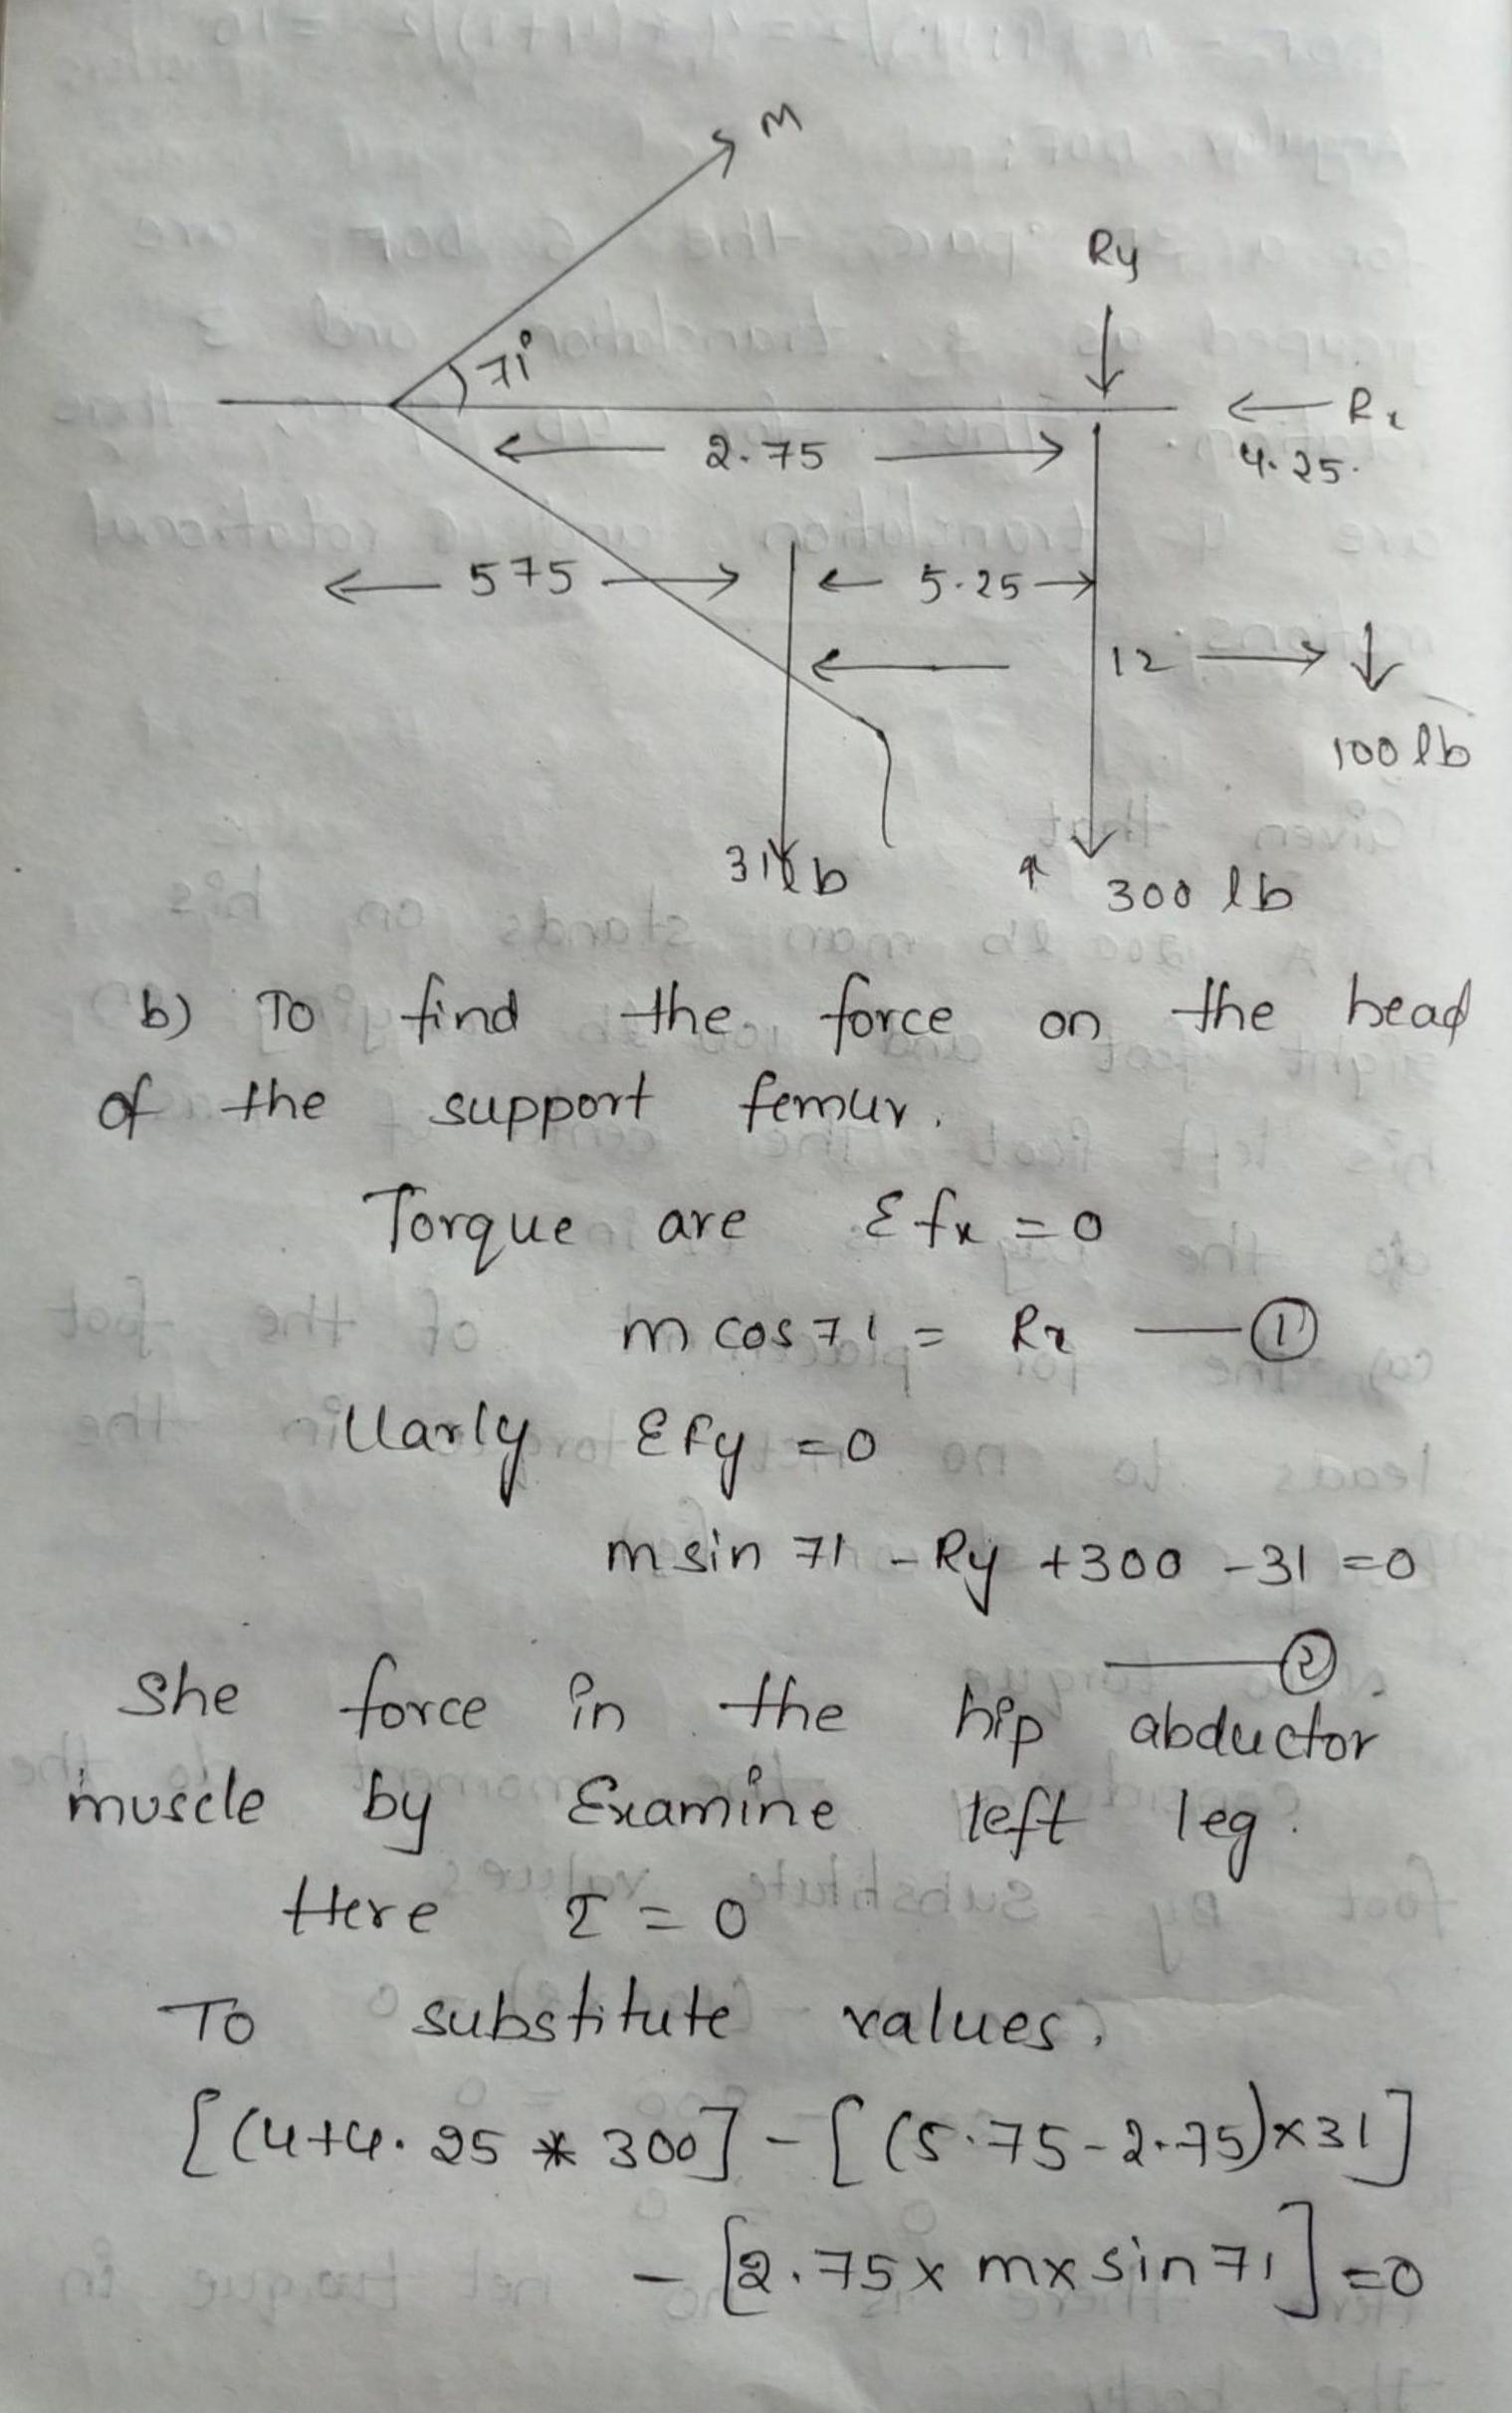 M
Ry
71°
← Rx
← 2.75 →
4.25.
← 575 →
← 5.25 →
← 12 → ↓
100 lb
31lb
↑ 300 lb
b) To find the force on the head
of the support femur.
Torque are Σfx = 0
m cos 71 = Rx — ①
lllarly Σfy = 0
m sin 71 - Ry + 300 - 31 = 0
— ②
She force in the hip abductor
muscle by Examine left leg.
Here τ = 0
To substitute values.
[(4+4.25 * 300] - [(5.75-2.75)×31]
- [2.75 × m× sin 71] = 0